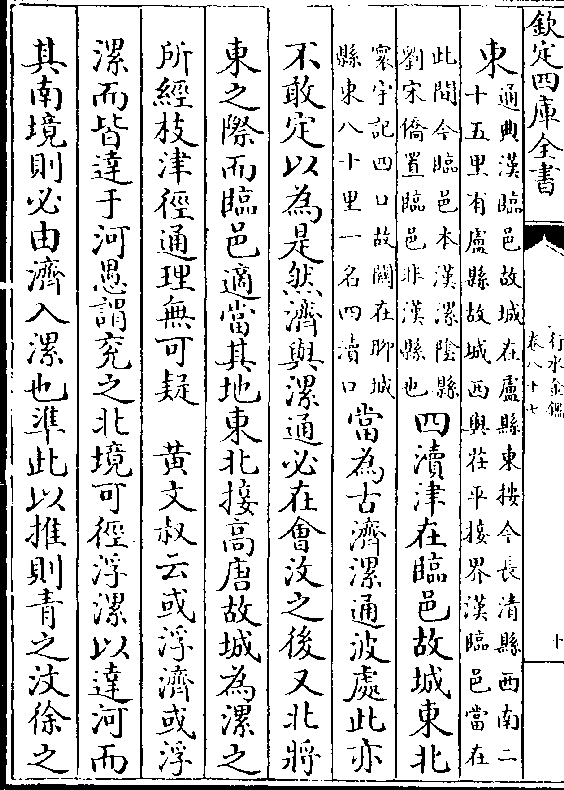 欽定四庫全書
行水金鑑
卷八十七
十
東
通典漢臨邑故城在盧縣東按今長清縣西南二
十五里有盧縣故城西與茌平接界漢臨邑當在
此間今臨邑本漢漯陰縣
劉宋僑置臨邑非漢縣也
四瀆津在臨邑故城東北
寰宇記四口故關在聊城
縣東八十里一名四瀆口
當為古濟漯通波處此亦
不敢定以為是然濟與漯通必在會汶之後又北將
東之際而臨邑適當其地東北接高唐故城為漯之
所經枝津徑通理無可疑　黃文叔云或浮濟或浮
漯而皆達于河愚謂兖之北境可徑浮漯以達河而
其南境則必由濟入漯也準此以推則青之汶徐之